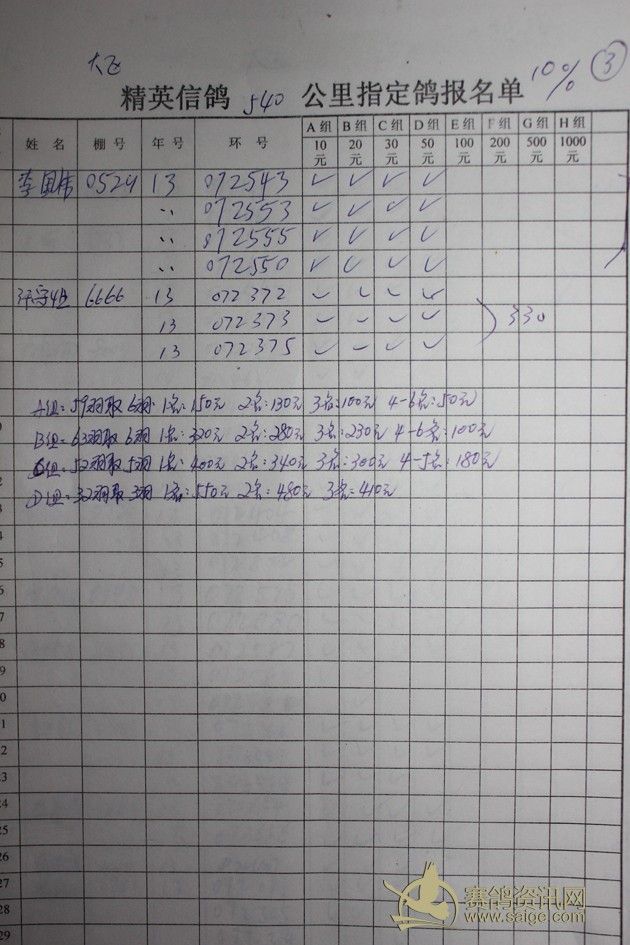 大飞
10% ③
精英信鸽 540 公里指定鸽报名单
姓名 棚号 年号 环号 A组 10元 B组 20元 C组 30元 D组 50元 E组 100元 F组 200元 G组 500元 H组 1000元
李国伟 0529 13 072543 ✓ ✓ ✓ ✓
〃 072553 ✓ ✓ ✓ ✓
〃 072555 ✓ ✓ ✓ ✓
〃 072550 ✓ ✓ ✓ ✓
6666 13 072372 ✓ ✓ ✓ ✓
13 072373 ✓ ✓ ✓ ✓ 330
13 072375 ✓ ✓ ✓ ✓
A组=59羽取6羽 1名:150元 2名:130元 3名:100元 4-6名:50元
B组=63羽取6羽 1名:320元 2名:280元 3名:230元 4-6名:100元
C组=52羽取5羽 1名:400元 2名:340元 3名:300元 4-5名:180元
D组=32羽取3羽 1名:550元 2名:480元 3名:410元
4
5
6
7
8
9
0
1
2
23
24
25
26
27
28
29
赛鸽资讯网
www.saige.com